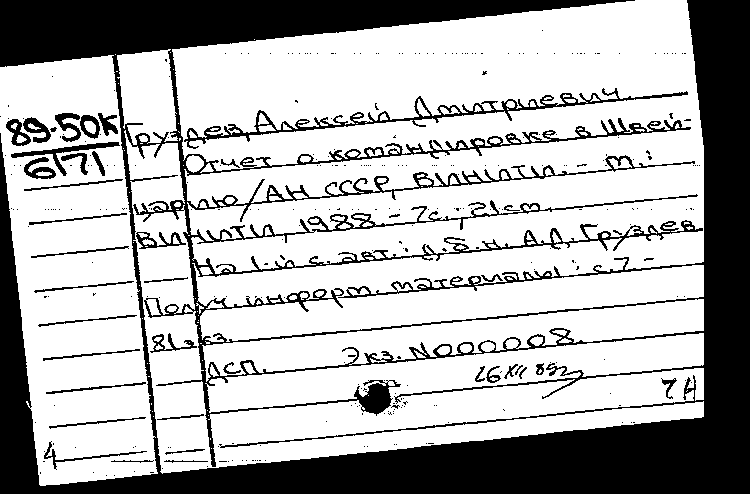 89-50К
6171
Груздев, Алексей Дмитриевич.
Отчет о командировке в Швей-
царию / АН СССР, ВИНИТИ. - М.:
ВИНИТИ, 1988. - 7с.; 21см.
На 1-й с. авт.: д.б.н. А.Д. Груздев
Получ. информ. материалы: с. 7 -
81 экз.
ДСП. Экз. N000008.
26 XII 89г
7А
4